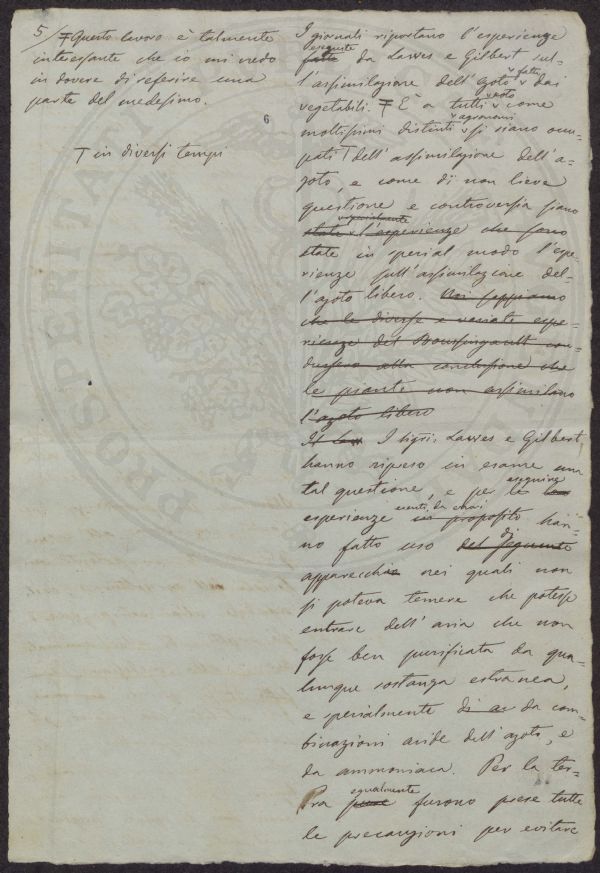 5/ Ŧ Questo lavoro è talmente
interessante che io mi credo
in dovere di riferire una
parte del medesimo.
6
T in diversi tempi
I giornali riportano l'esperienze
eseguite
fatte da Lawes e Gilbert sul-
l'assimilazione dell'azoto fatta dai
vegetabili. Ŧ È a tutti noto come
moltissimi distinti agronomi si siano occu-
pati T dell'assimilazione dell'a-
zoto, e come di non lieve
questione e controversia siano
state specialmente l'esperienze che sono
state in special modo l'espe-
rienze sull'assimilazione del-
l'azoto libero. Noi sappiamo
che le diverse e variate espe-
rienze del Boussingault con-
dussero alla conclusione che
le piante non assimilano
l'azoto libero
Il Law I sigri: Lawes e Gilbert
hanno ripreso in esame una
tal questione, e per le
esperienze in proposito han-
no fatto uso del seguente di
apparecchi nei quali non
si poteva temere che potesse
entrare dell'aria che non
fosse ben purificata da qua-
lunque sostanza estranea,
e specialmente di ac da com-
binazioni acide dell'azoto, e
da ammoniaca. Per la ter-
ra pure egualmente furono prese tutte
le precauzioni per evitare